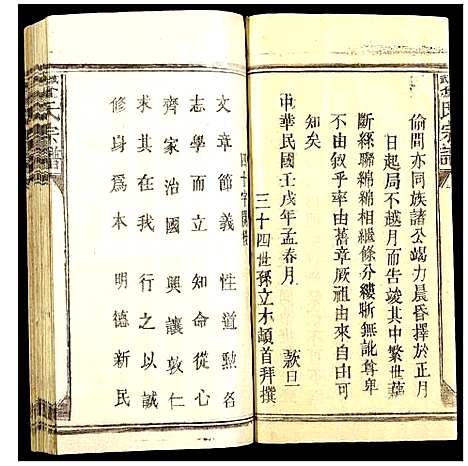 偷閒亦同族諸公竭力晨昏擇於正月
日起局不越月而告竣其中繁世藉
斷經聯綿綿相繼條分縷晰無訛尊卑
不由叙乎率由舊章厥祖由來自自可
知矣
中華民國壬戌年孟春月 穀旦
三十四世孫立木頓首拜撰
四十字
文章節義 性道勲名
志學而立 知命從心
齊家治國 興讓敦仁
求其在我 行之以誠
修身爲本 明德新民
氏宗譜
氏宗譜